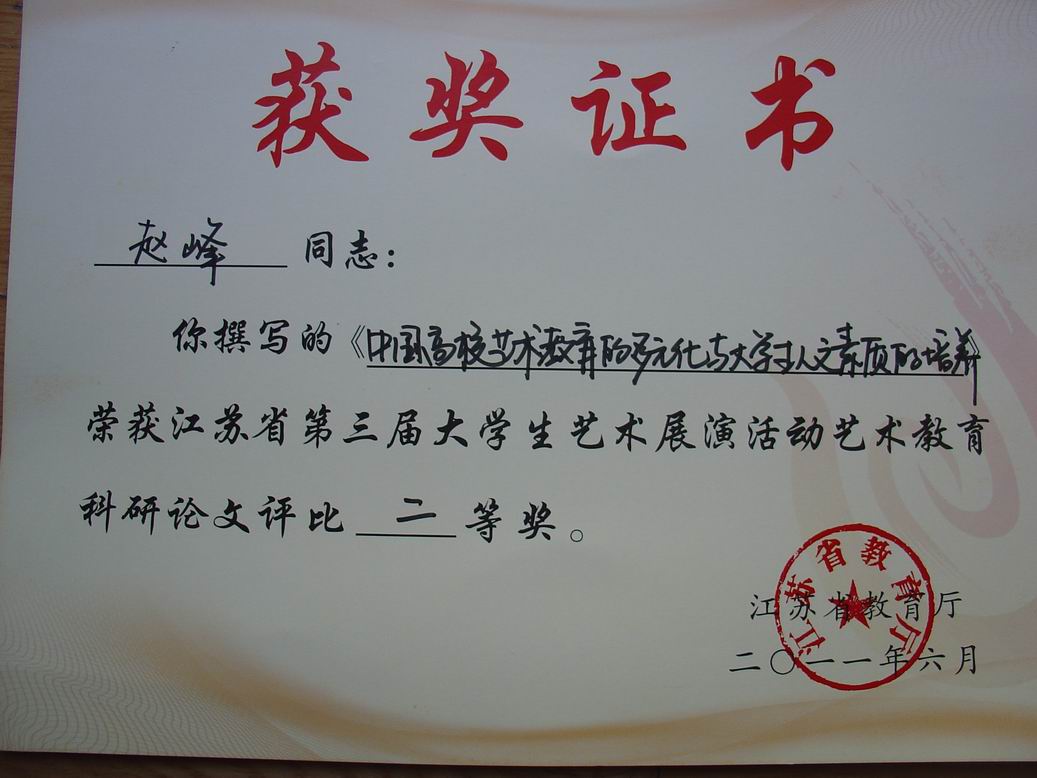 获奖证书
赵峰 同志：
你撰写的《中国高校艺术教育的多元化与大学生人文素质的培养》
荣获江苏省第三届大学生艺术展演活动艺术教育
科研论文评比 二 等奖。
江苏省教育厅
江苏省教育厅
二〇一一年六月